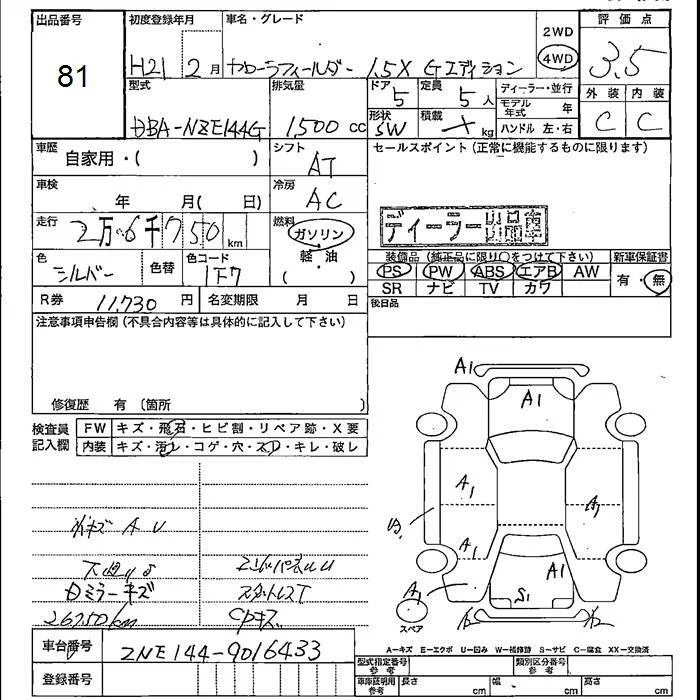 出品番号
81
初度登録年月
H21 2月
車名・グレード
カローラフィールダー 1.5X Gエディション
2WD
4WD
評価点
3.5
外装 内装
C C
型式
DBA-NZE144G
排気量
1,500 cc
ドア 5
定員 5人
形状 SW
積載 kg
ディーラー・並行
モデル年式 年
ハンドル 左・右
車歴
自家用・( )
シフト
AT
セールスポイント(正常に機能するものに限ります)
車検
年 月( 日)
冷房
AC
ディーラー出品車
走行
2万6千750 km
燃料
ガソリン
軽・油
( )
色
シルバー
色替
色コード
1F7
装備品(純正品に限り○をつけて下さい)
PS PW ABS エアB AW
SR ナビ TV カワ
新車保証書
有・無
R券 11,730 円
名変期限 月 日
後日品
注意事項申告欄(不具合内容等は具体的に記入して下さい)
修復歴 有 (箇所 )
検査員記入欄
FW キズ・飛石・ヒビ割・リペア跡・X要
内装 キズ・汚れ・コゲ・穴・スレ・キレ・破レ
キズ A U
ミラーキズ
スタットレスT
26750km
CPキズ
A1
A1
A1
A1
A1
A1
A1
S1
スペア
A-キズ E-エクボ U-凹み W-補修跡 S-サビ C-腐食 XX-交換済
車台番号
ZNE144-9016433
登録番号
型式指定番号 参考
類別区分番号 参考
車庫証明用 参考
長さ cm
幅 cm
高さ cm